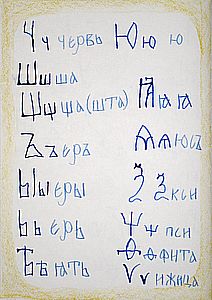 Ч ч червь
Ш ш ша
Щ щ ща(шта)
Ъ ъ еръ
Ы ы еры
Ь ь ерь
Ѣ ѣ ять
Ю ю ю
Ѧ ѧ юсъ
Ѯ ѯ кси
Ѱ ѱ пси
Ѳ ѳ фита
Ѵ ѵ ижица